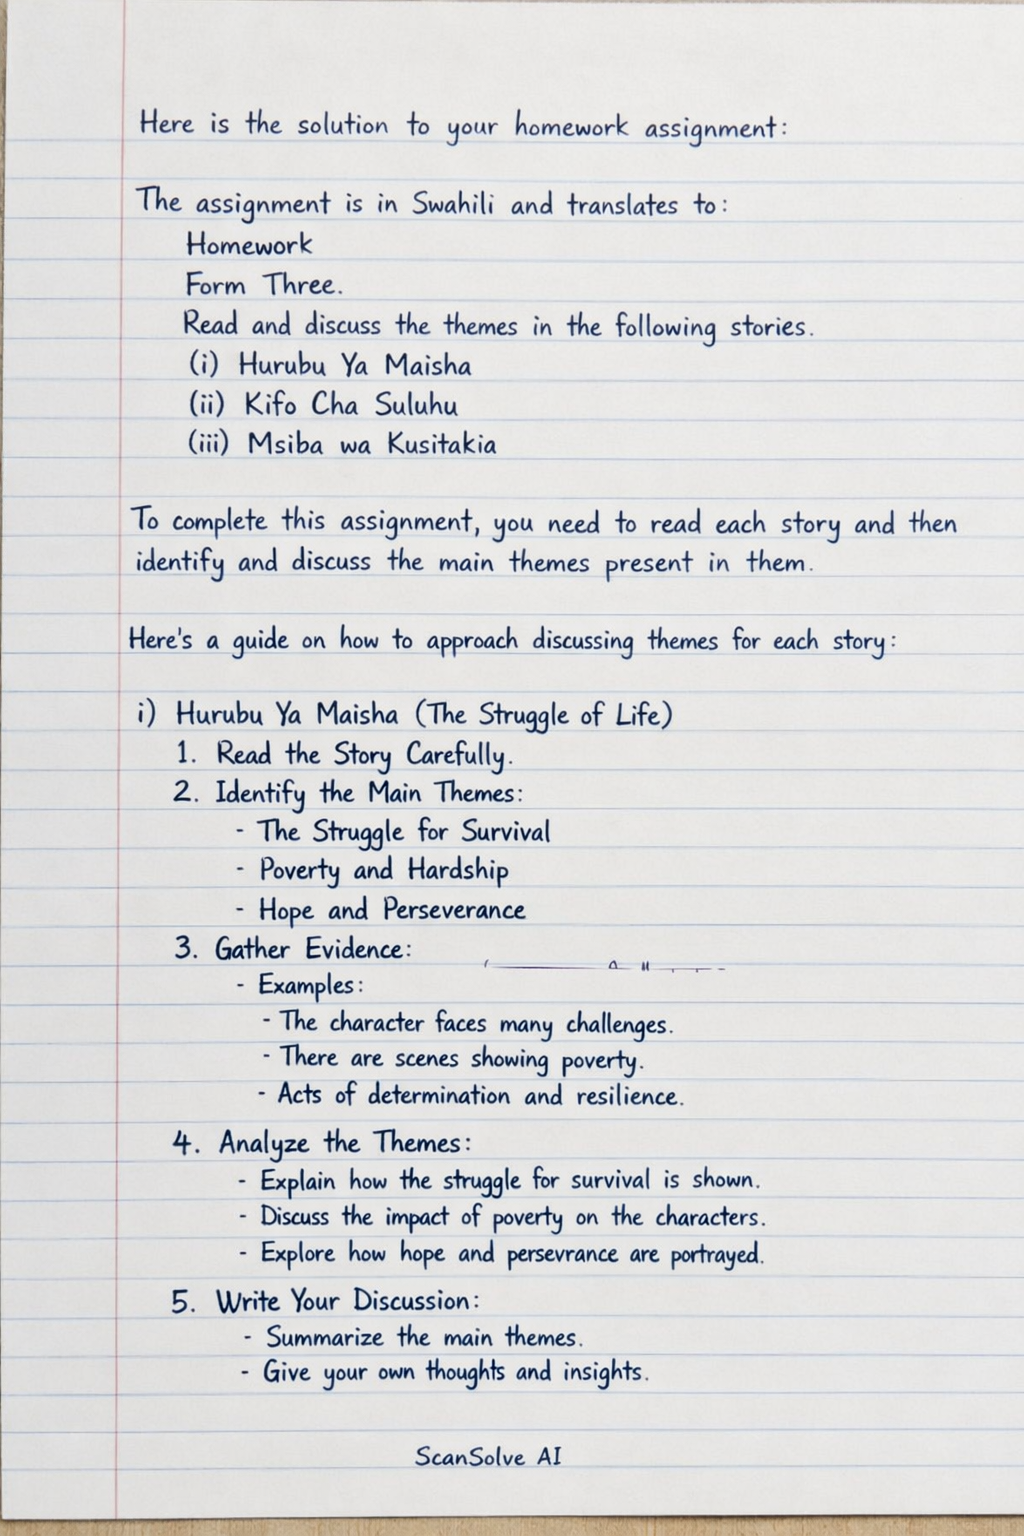 Here is the solution to your homework assignment:
The assignment is in Swahili and translates to:
Homework
Form Three.
Read and discuss the themes in the following stories.
(i) Hurubu Ya Maisha
(ii) Kifo Cha Suluhu
(iii) Msiba wa Kusitakia
To complete this assignment, you need to read each story and then
identify and discuss the main themes present in them.
Here's a guide on how to approach discussing themes for each story:
i) Hurubu Ya Maisha (The Struggle of Life)
1. Read the Story Carefully.
2. Identify the Main Themes:
- The Struggle for Survival
- Poverty and Hardship
- Hope and Perseverance
3. Gather Evidence:
- Examples:
- The character faces many challenges.
- There are scenes showing poverty.
- Acts of determination and resilience.
4. Analyze the Themes:
- Explain how the struggle for survival is shown.
- Discuss the impact of poverty on the characters.
- Explore how hope and persevrance are portrayed.
5. Write Your Discussion:
- Summarize the main themes.
- Give your own thoughts and insights.
ScanSolve AI